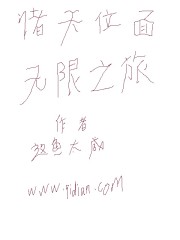 诸天位面
无限之旅
作者
鱼大
www.qidian.com